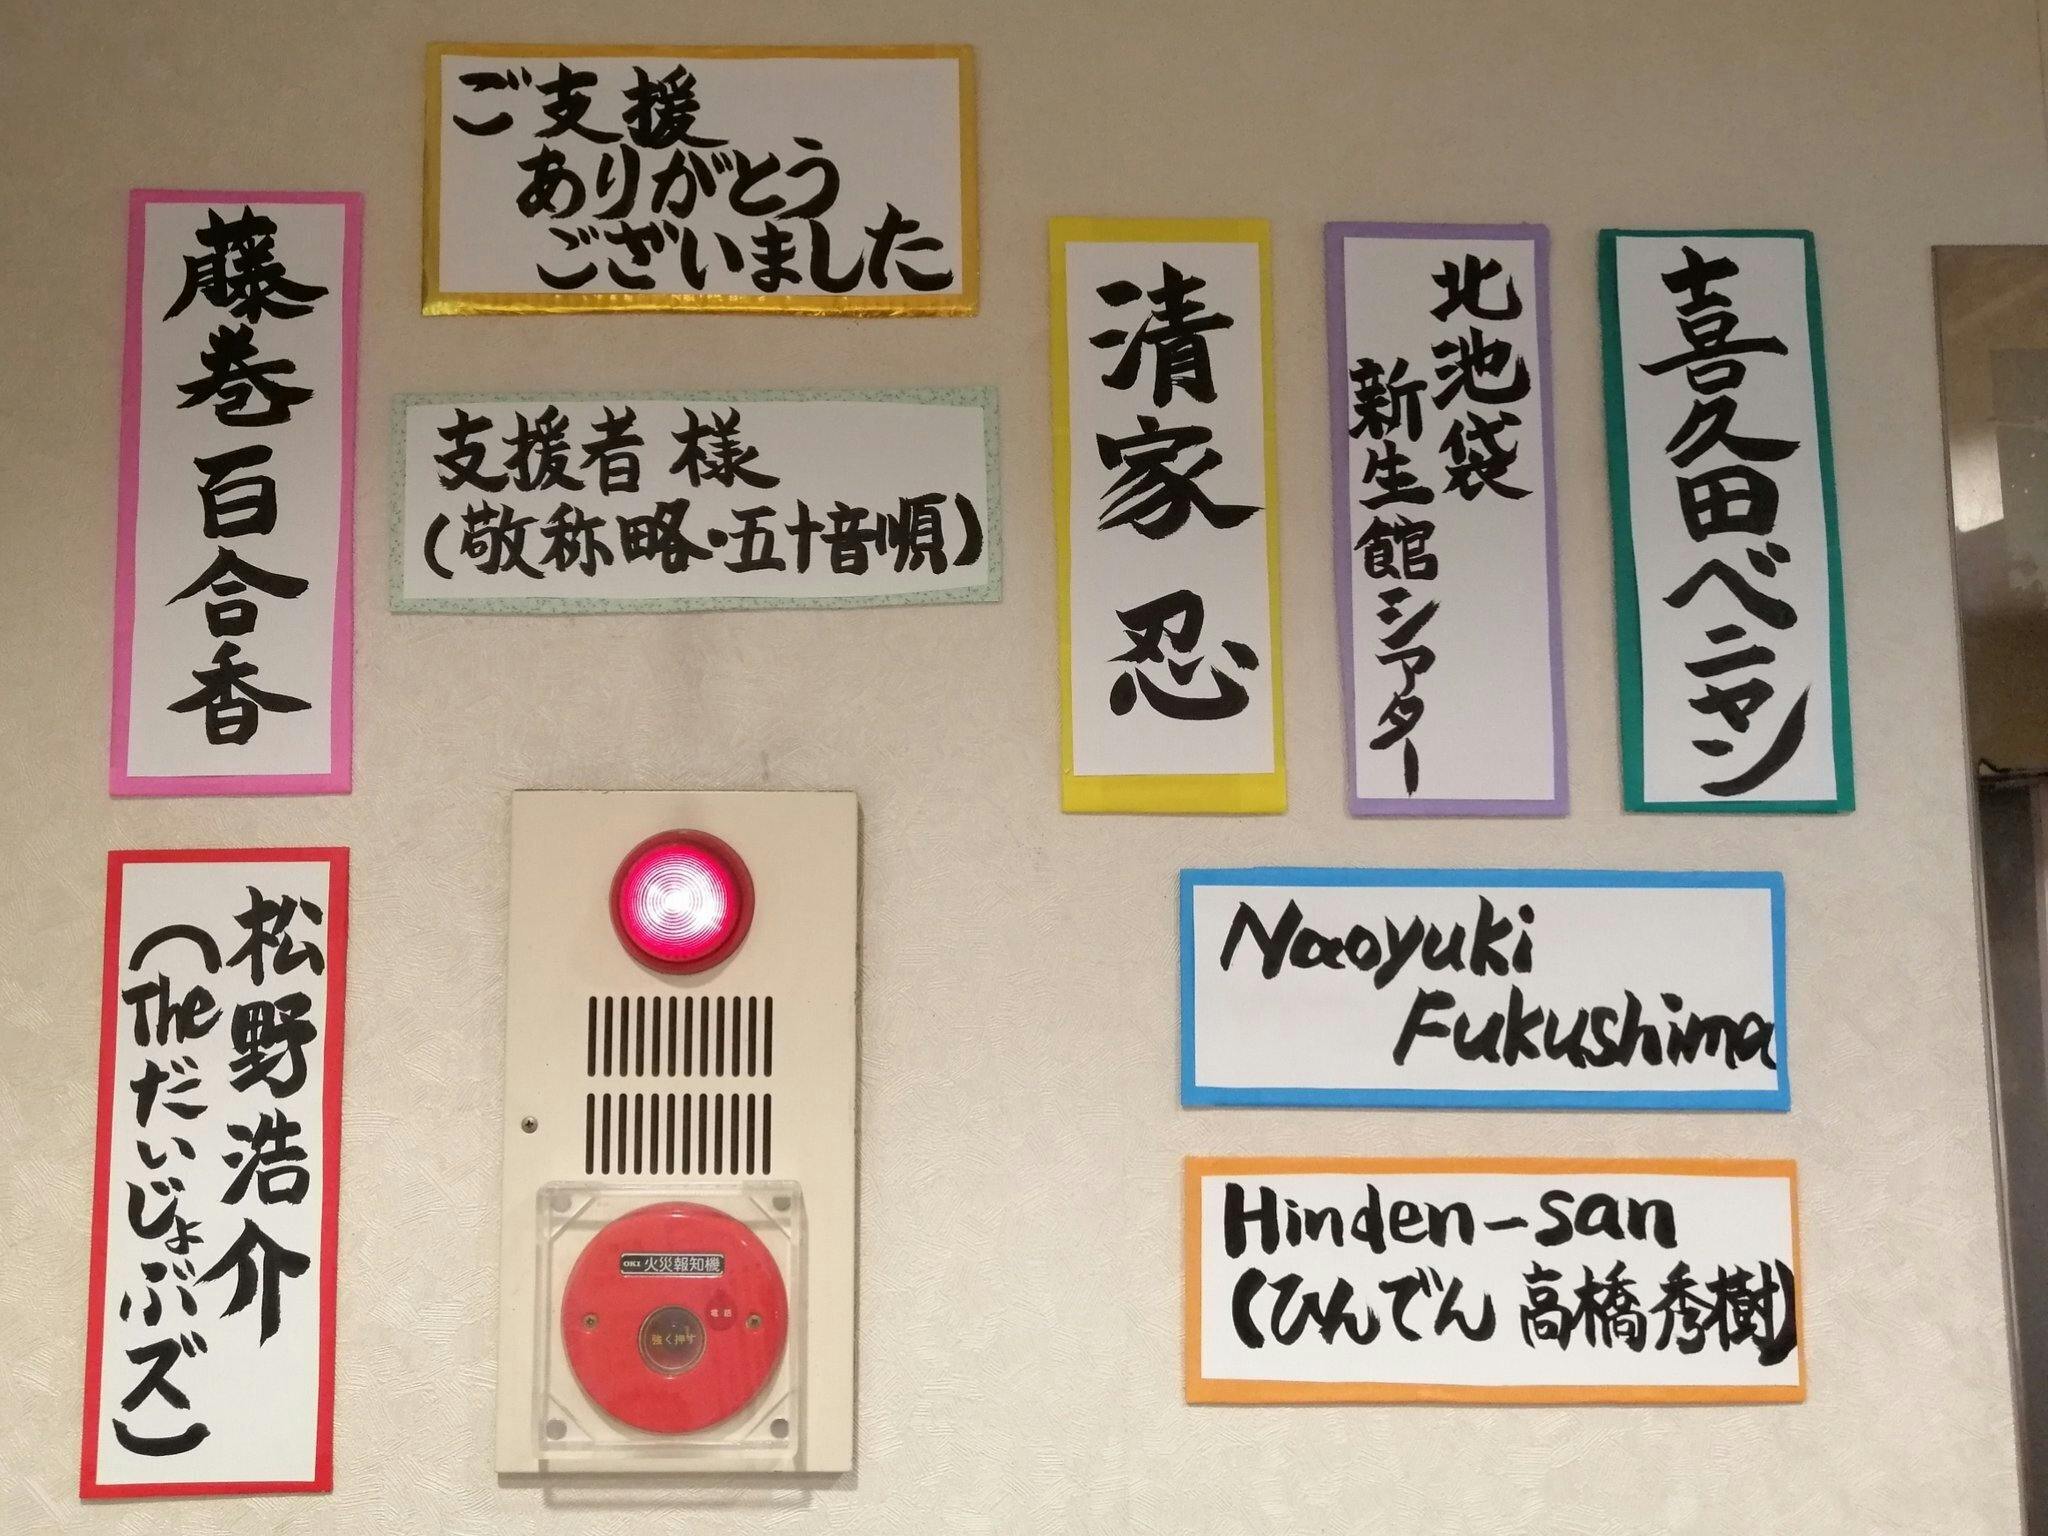 ご支援
ありがとう
ございました
支援者 様
(敬称略・五十音順)
喜久田ベニャン
北池袋
新生館シアター
清家 忍
Naoyuki
Fukushima
Hinden-san
(ひんでん 高橋秀樹)
藤巻百合香
松野浩介
(Theだいじょぶズ)
OKI 火災報知機
電話
強く押す